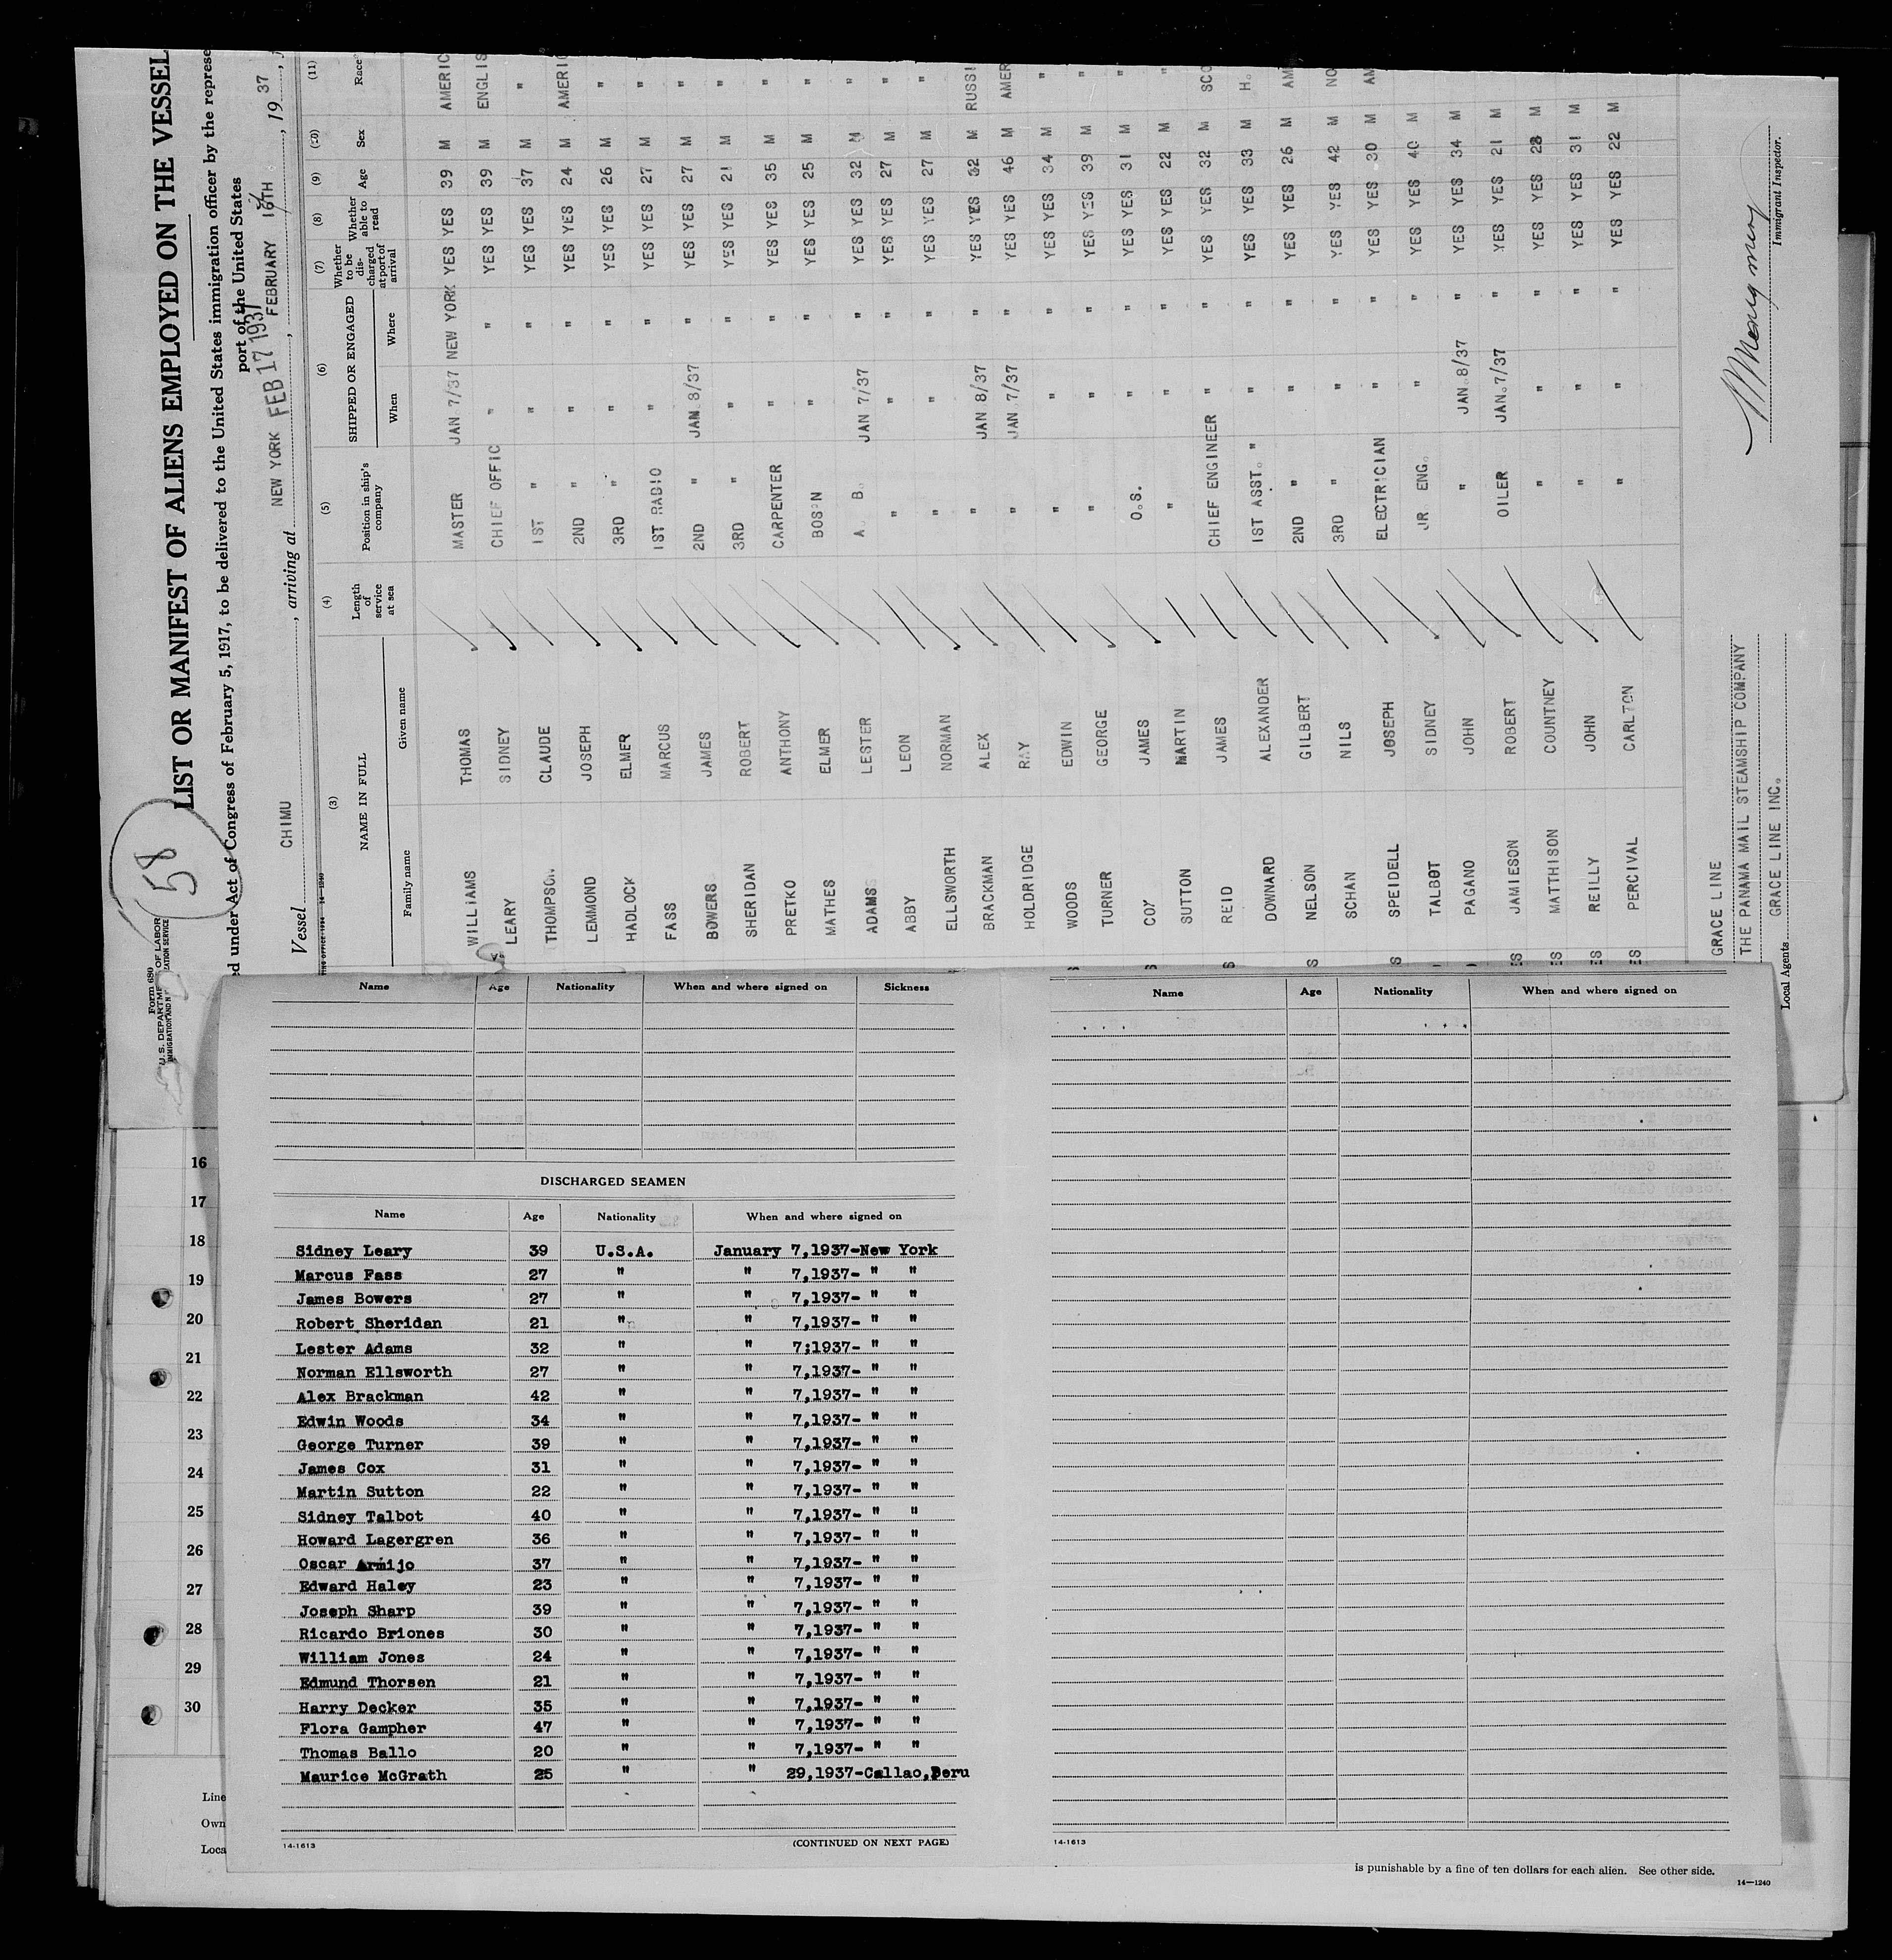 Form 680
U. S. DEPARTMENT OF LABOR
IMMIGRATION AND N
58
LIST OR MANIFEST OF ALIENS EMPLOYED ON THE VESSEL
ed under Act of Congress of February 5, 1917, to be delivered to the United States immigration officer by the represe
port of the United States
Vessel CHIMU, arriving at NEW YORK FEB 17 1937, FEBRUARY 16TH, 19 37
14-1240
(3) (4) (5) (6) (7) (8) (9) (10) (11)
NAME IN FULL Length of service at sea Position in ship's company SHIPPED OR ENGAGED Whether to be discharged at port of arrival Whether able to read Age Sex Race
Family name Given name When Where
WILLIAMS THOMAS MASTER JAN 7/37 NEW YORK YES YES 39 M AMERIC
LEARY SIDNEY CHIEF OFFIC " " YES YES 39 M ENGLIS
THOMPSON CLAUDE 1ST " " " YES YES 37 M "
LEMMOND JOSEPH 2ND " " " YES YES 24 M AMERI
HADLOCK ELMER 3RD " " " YES YES 26 M "
FASS MARCUS 1ST RADIO " " YES YES 27 M "
BOWERS JAMES 2ND " JAN 8/37 " YES YES 27 M "
SHERIDAN ROBERT 3RD " " " YES YES 21 M "
PRETKO ANTHONY CARPENTER " " YES YES 35 M "
MATHES ELMER BOS'N " " YES YES 25 M "
ADAMS LESTER A. B. JAN 7/37 " YES YES 32 M "
ABBY LEON " " " YES YES 27 M "
ELLSWORTH NORMAN " " " YES YES 27 M "
BRACKMAN ALEX " JAN 8/37 " YES YES 42 M RUSSI
HOLDRIDGE RAY " JAN 7/37 " YES YES 46 M AMER
WOODS EDWIN " " " YES YES 34 M "
TURNER GEORGE " " " YES YES 39 M "
COX JAMES O.S. " " YES YES 31 M "
SUTTON MARTIN " " " YES YES 22 M "
REID JAMES CHIEF ENGINEER " " YES YES 32 M SCO
DOWNARD ALEXANDER 1ST ASST. " " " YES YES 33 M H.
NELSON GILBERT 2ND " " " YES YES 26 M AM
SCHAN NILS 3RD " " " YES YES 42 M NO
SPEIDELL JOSEPH ELECTRICIAN " " YES YES 30 M AM
TALBOT SIDNEY JR ENG. " " YES YES 40 M
PAGANO JOHN " JAN.8/37 " YES YES 34 M
JAMIESON ROBERT OILER JAN.7/37 " YES YES 21 M
MATTHISON COUNTNEY " " " YES YES 28 M
REILLY JOHN " " " YES YES 31 M
PERCIVAL CARLTON " " " YES YES 22 M
GRACE LINE
THE PANAMA MAIL STEAMSHIP COMPANY
Local Agents GRACE LINE INC.
Immigrant Inspector.
Name Age Nationality When and where signed on Sickness
DISCHARGED SEAMEN
Name Age Nationality When and where signed on
Sidney Leary 39 U.S.A. January 7,1937-New York
Marcus Fass 27 " " 7,1937- " "
James Bowers 27 " " 7,1937- " "
Robert Sheridan 21 " " 7,1937- " "
Lester Adams 32 " " 7;1937- " "
Norman Ellsworth 27 " " 7,1937- " "
Alex Brackman 42 " " 7,1937- " "
Edwin Woods 34 " " 7,1937- " "
George Turner 39 " " 7,1937- " "
James Cox 31 " " 7,1937- " "
Martin Sutton 22 " " 7,1937- " "
Sidney Talbot 40 " " 7,1937- " "
Howard Lagergren 36 " " 7,1937- " "
Oscar Armijo 37 " " 7,1937- " "
Edward Haley 23 " " 7,1937- " "
Joseph Sharp 39 " " 7,1937- " "
Ricardo Briones 30 " " 7,1937- " "
William Jones 24 " " 7,1937- " "
Edmund Thorsen 21 " " 7,1937- " "
Harry Decker 35 " " 7,1937- " "
Flora Gampher 47 " " 7,1937- " "
Thomas Ballo 20 " " 7,1937- " "
Maurice McGrath 25 " " 29,1937-Callao,Peru
14-1613 (CONTINUED ON NEXT PAGE)
Name Age Nationality When and where signed on
14-1613
16
17
18
19
20
21
22
23
24
25
26
27
28
29
30
Line
Own
Loca
is punishable by a fine of ten dollars for each alien. See other side.
14—1240